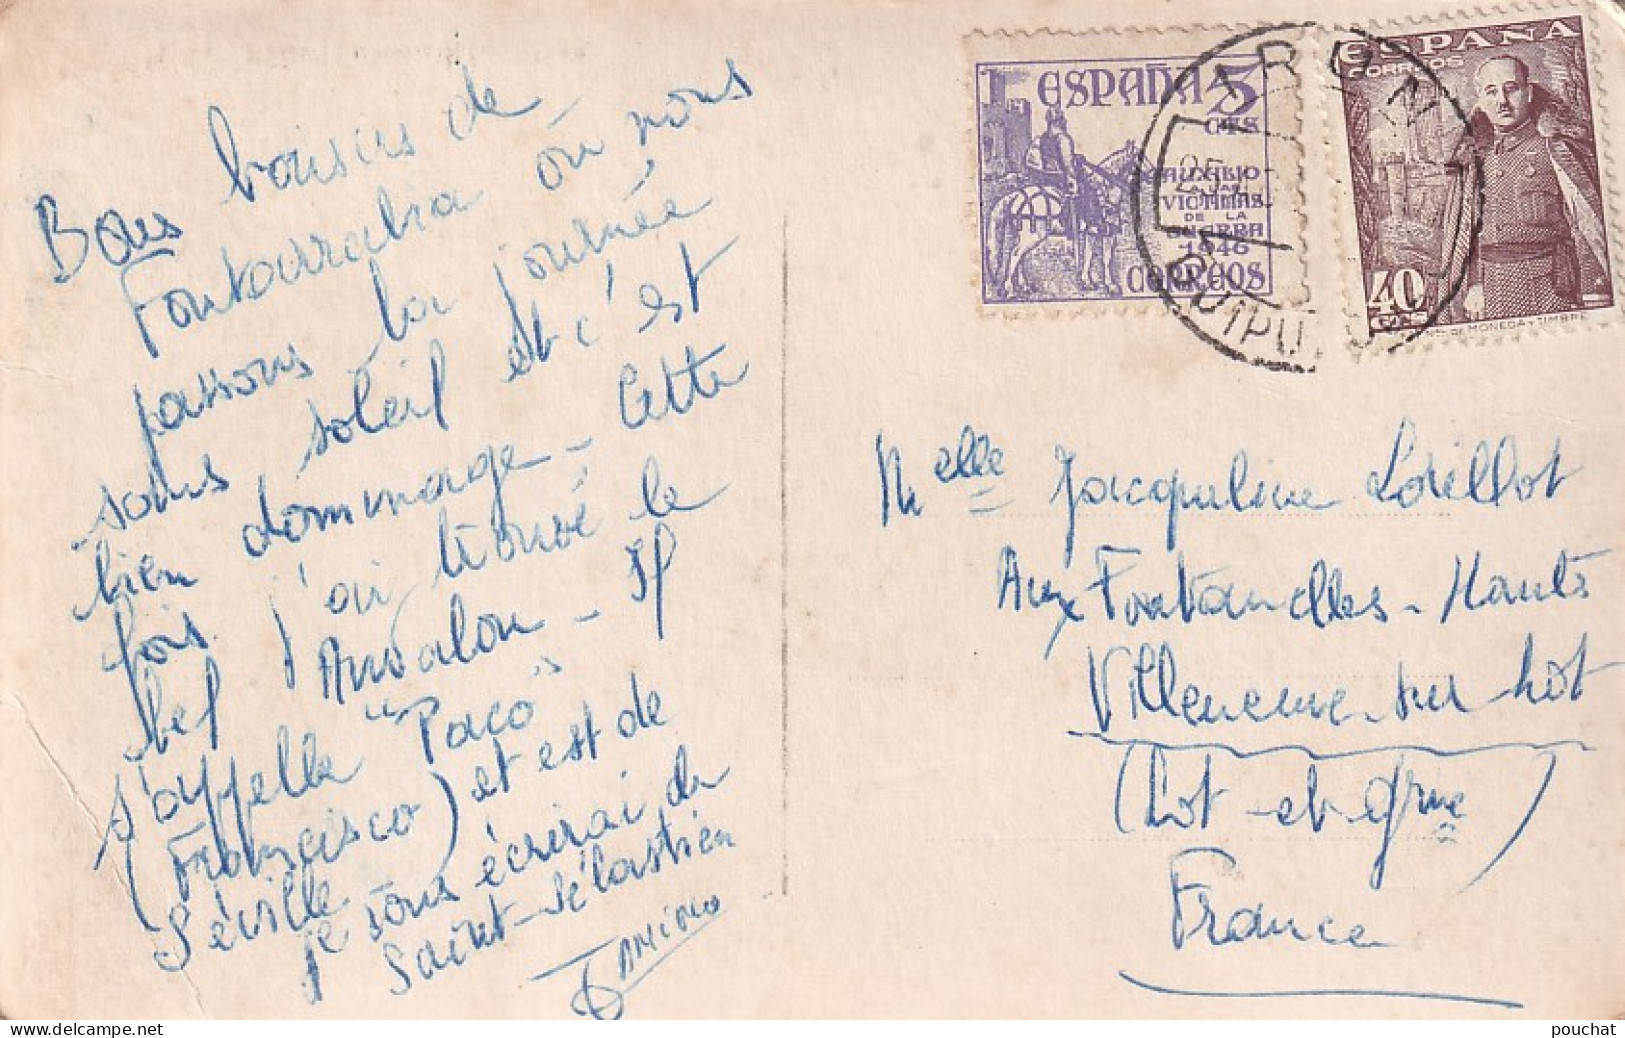 Bons baisers de
Fontarrabia où nous
passons la journée
sous soleil et c'est
bien dommage - Cette
fois j'ai trouvé le
bel Andalou - Il
s'appelle "Paco"
(Francisco) et est de
Séville.
Je vous écrirai de
Saint-Sébastien
ESPAÑA 5
CTS
AUXILIO
A LAS
VICTIMAS
DE LA
GUERRA
1946
CORREOS
ESPAÑA
CORREOS
40
CTS
MONEDA Y TIMBRE
IRUN
25
GUIPU
Melle Jacqueline Loillot
Aux Fontanelles - Hauts
Villeneuve sur Lot
(Lot-et-Grne)
France
pouchat